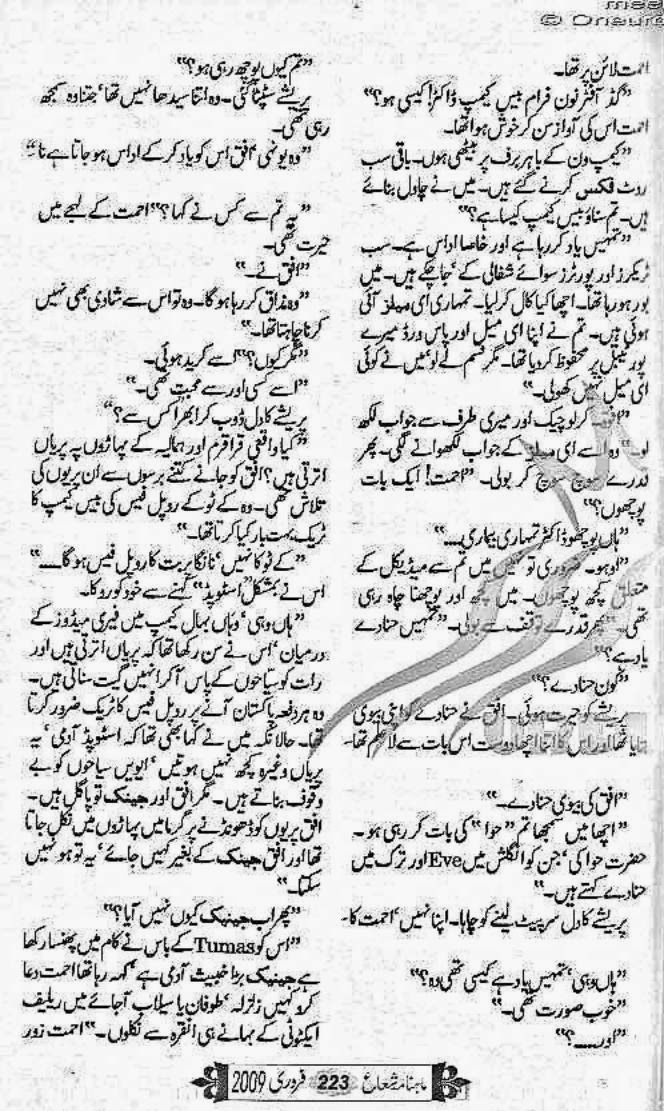 احمت لائن پر تھا۔
"گڈ آفٹر نون فرام بیس کیمپ ڈاکٹر! کیسی ہو؟"
احمت اس کی آواز سن کر خوش ہوا تھا۔
"کیمپ ون کے باہر برف پر بیٹھی ہوں۔ باقی سب
روٹ فکس کرنے گئے ہیں۔ میں نے چاول بنائے
ہیں۔ تم سناؤ بیس کیمپ کیسا ہے؟"
"تمہیں یاد کر رہا ہے اور خاصا اداس ہے۔ سب
ٹریکرز اور پورٹرز سوائے شفالی کے، جا چکے ہیں۔ میں
بور ہو رہا تھا۔ اچھا کیا کال کر لیا۔ تمہاری ای میلز آئی
ہوئی ہیں۔ تم نے اپنا ای میل اور پاس ورڈ میرے
پورٹیبل پر محفوظ کر دیا تھا۔ مگر قسم لے لو، میں نے کوئی
ای میل نہیں کھولی۔"
"افوہ کر لو چیک اور میری طرف سے جواب لکھ
لو۔" وہ اسے ای میلز کے جواب لکھوانے لگی۔ پھر
قدرے سوچ سوچ کر بولی۔ "احمت! ایک بات
پوچھوں؟"
"ہاں پوچھو ڈاکٹر تمہاری بیماری۔۔۔۔"
"اوہو۔ ضروری تو نہیں میں تم سے میڈیکل کے
متعلق کچھ پوچھوں۔ میں کچھ اور پوچھنا چاہ رہی
تھی۔" پھر قدرے توقف سے بولی۔ "تمہیں حنادے
یاد ہے؟"
"کون حنادے؟"
پریشے کو حیرت ہوئی۔ افق نے حنادے کو اپنی بیوی
بتایا تھا اور اس کا اتنا اچھا دوست اس بات سے لاعلم تھا۔
"افق کی بیوی حنادے۔"
"اچھا میں سمجھا تم "حوا" کی بات کر رہی ہو۔
حضرت حوا کی، جن کو انگلش میں Eve اور ترک میں
حنادے کہتے ہیں۔"
پریشے کا دل سر پیٹ لینے کو چاہا۔ اپنا نہیں، احمت کا۔
"ہاں وہی، تمہیں یاد ہے کیسی تھی وہ؟"
"خوب صورت تھی۔"
"اور۔۔۔۔؟"
"تم کیوں پوچھ رہی ہو؟"
پریشے سٹپٹا گئی۔ وہ اتنا سیدھا نہیں تھا، جتنا وہ سمجھ
رہی تھی۔
"وہ یونہی، افق اس کو یاد کر کے اداس ہو جاتا ہے نا"
"یہ تم سے کس نے کہا؟" احمت کے لہجے میں
حیرت تھی۔
"افق نے۔"
"وہ مذاق کر رہا ہو گا۔ وہ تو اس سے شادی بھی نہیں
کرنا چاہتا تھا۔"
"مگر کیوں؟" اسے کرید ہوئی۔
"اسے کسی اور سے محبت تھی۔"
پریشے کا دل ڈوب کر ابھرا "کس سے؟"
"کیا واقعی قراقرم اور ہمالیہ کے پہاڑوں پہ پریاں
اترتی ہیں؟ افق کو جانے کتنے برسوں سے ان پریوں کی
تلاش تھی۔ وہ کے ٹو کے روپل فیس کی بیس کیمپ کا
ٹریک بہت بار کیا کرتا تھا۔"
"کے ٹو کا نہیں، نانگا پربت کا روپل فیس ہو گا۔۔۔۔"
اس نے بمشکل "اسٹوپڈ" کہنے سے خود کو روکا۔
"ہاں وہی، وہاں بہال کیمپ میں فیری میڈوز کے
درمیان، اس نے سن رکھا تھا کہ پریاں اترتی ہیں اور
رات کو سیاحوں کے پاس آ کر انہیں گیت سناتی ہیں۔
وہ ہر دفعہ پاکستان آنے پر روپل فیس کا ٹریک ضرور کرتا
تھا۔ حالانکہ میں نے کہا بھی تھا کہ اسٹوپڈ آدمی، یہ
پریاں وغیرہ کچھ نہیں ہوتیں، ایویں سیاحوں کو بے
وقوف بناتے ہیں۔ مگر افق اور جینک تو پاگل ہیں۔
افق پریوں کو ڈھونڈنے ہر گرما میں پہاڑوں میں نکل جاتا
تھا اور افق جینک کے بغیر کہیں جائے، یہ تو ہو نہیں
سکتا۔"
"پھر اب جینیک کیوں نہیں آیا؟"
"اس کو Tumas کے باس نے کام میں پھنسا رکھا
ہے جینیک بڑا خبیث آدمی ہے، کہہ رہا تھا احمت دعا
کرو کہیں زلزلہ، طوفان یا سیلاب آ جائے میں ریلیف
ایکٹوٹی کے بہانے ہی انقرہ سے نکلوں۔" احمت زور
ماہنامہ شعاع 223 فروری 2009